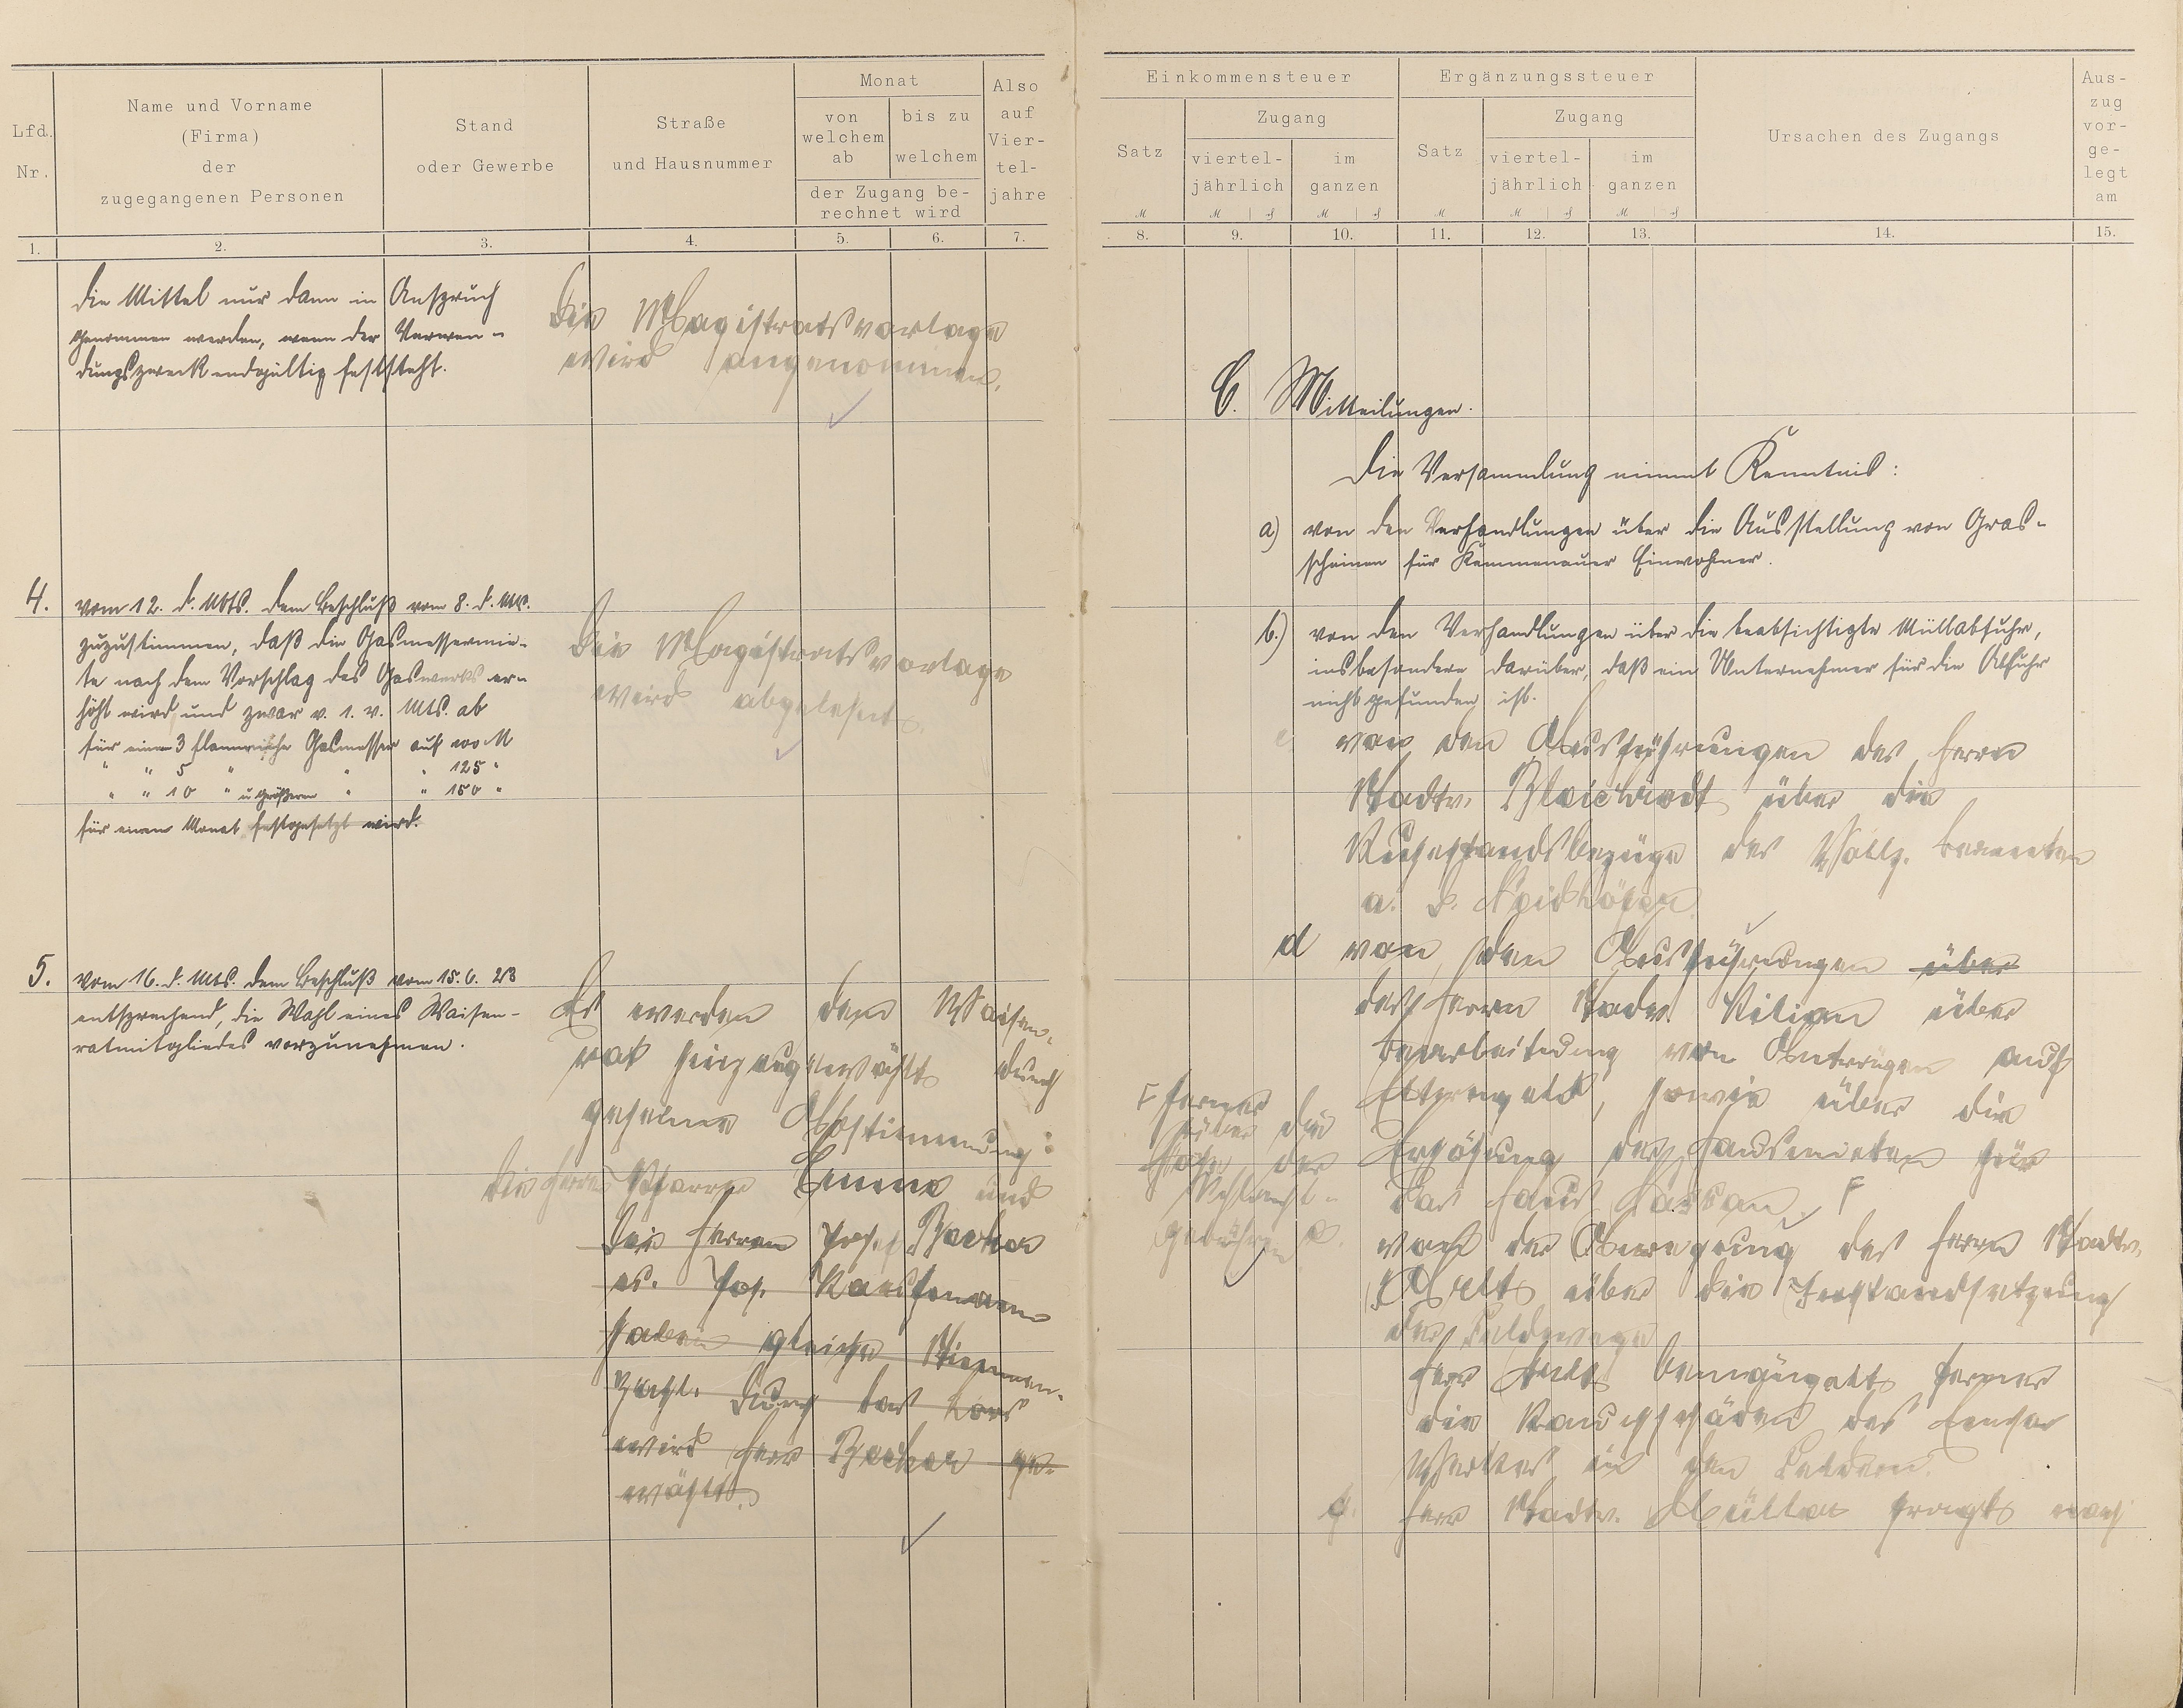 Lfd. Nr.
Name und Vorname
(Firma)
der
zugegangenen Personen
Stand
oder Gewerbe
Straße
und Hausnummer
Monat
von welchem ab
bis zu welchem
der Zugang be-
rechnet wird
Also auf Vier-tel-jahre
1. 2. 3. 4. 5. 6. 7.
die Mittel nur dann in Anspruch
genommen werden, wenn der Verwen-
dungszweck endgültig feststeht.
Die Magistratsvorlage
wird angenommen.
4. vom 12. d. Mts. dem Beschluß vom 8. d. Mts.
zuzustimmen, daß die Gasmessermie-
te nach dem Vorschlag des Gaswerks er-
höht wird und zwar v. 1. v. Mts. ab
für einen 3 flammische Gasmesser auf 100 M
" " 5 " " " 125 "
" " 10 " u größeren " " 150 "
für einen Monat festgesetzt wird.
Die Magistratsvorlage
wird abgelehnt.
5. vom 16. d. Mts. dem Beschluß vom 15.6.23
entsprechend, die Wahl eines Waisen-
ratmitgliedes vorzunehmen.
Es werden dem Waisen-
rat hinzugewählt durch
geheime Abstimmung:
die Herren Pfarrer und
Die Herren Josef Becker
u. Jos. Kaufmann
haben gleiche Stimmen-
zahl. Durch das Los
wird Herr Becker ge-
wählt.
Einkommensteuer
Satz
Zugang
viertel-
jährlich
im
ganzen
Ergänzungssteuer
Satz
Zugang
viertel-
jährlich
im
ganzen
Ursachen des Zugangs
Aus-zug vor-ge-legt am
8. 9. 10. 11. 12. 13. 14. 15.
C. Mitteilungen.
Die Versammlung nimmt Kenntnis:
a) von den Verhandlungen über die Ausstellung von Gras-
scheinen für Kemmenauer Einwohner.
b.) von den Verhandlungen über die beabsichtigte Müllabfuhr,
insbesondere darüber, daß ein Unternehmer für die Abfuhr
nicht gefunden ist.
c. von den Ausführungen des Herrn
Stadtv. über die
Ruhestandsbezüge des Vollz. beamten
a. D.
d von den Ausführungen über
des Herrn Stadtv. Kilian über
Bearbeitung von Anträgen auf
, sowie über die
Erhöhung der Hausmieten für
das Haus
F ferner
über die
Höhe der
Schlacht-
gebühren
e. von der Anregung des Herrn Stadtv.
über die Instandsetzung
der Feldwege
Herr bemängelt ferner
die Rauchschäden des
Werkes in den Feldern.
f. Herr Stadtv. Müller fragt nach